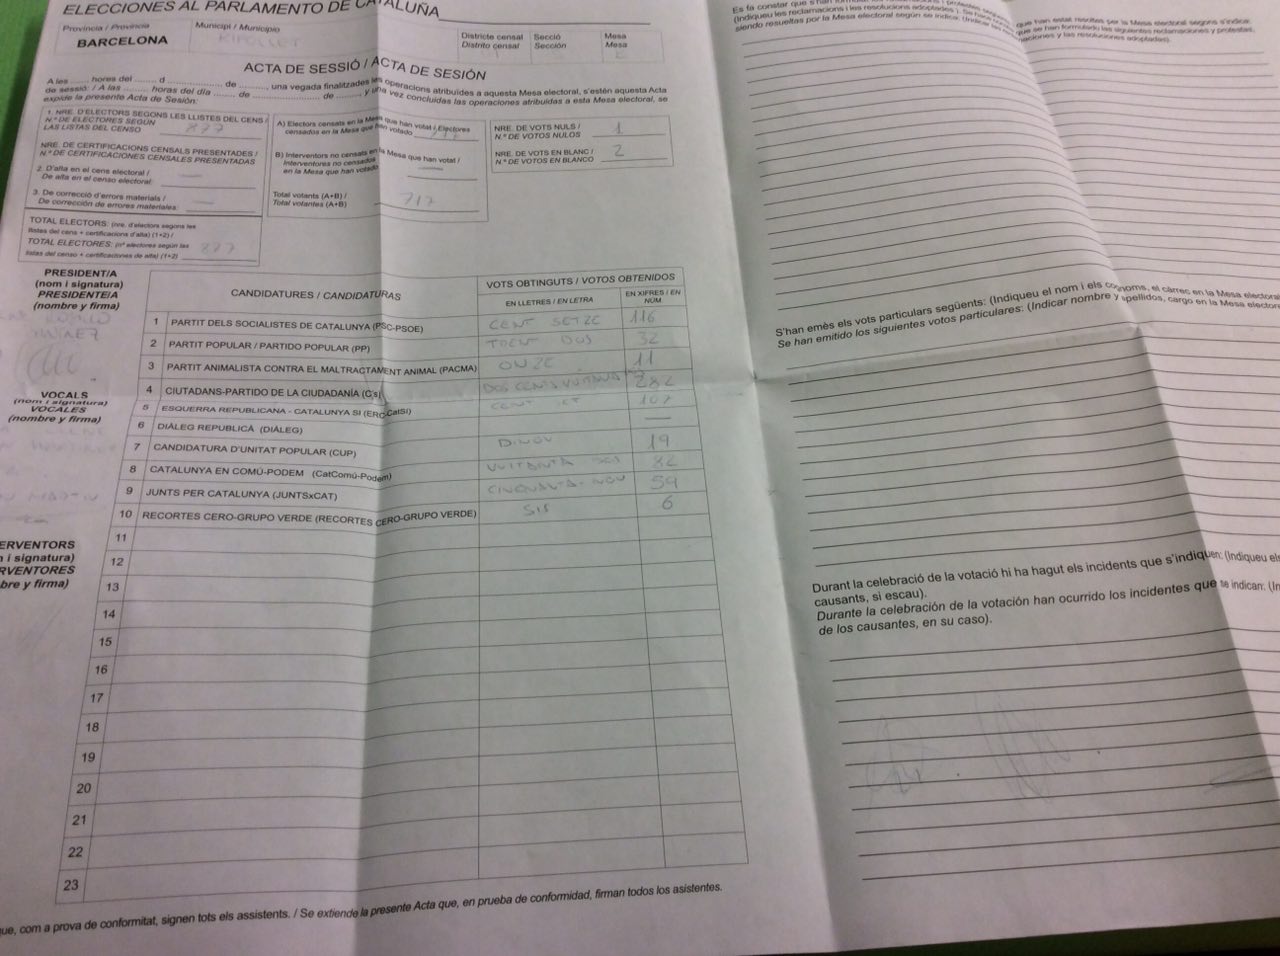 ELECCIONES AL PARLAMENTO DE CATALUÑA
Província / Provincia
BARCELONA
Municipi / Municipio
RIPOLLET
Districte censal
Distrito censal
Secció
Sección
Mesa
Mesa
ACTA DE SESSIÓ / ACTA DE SESIÓN
A les ........ hores del ........ d ........ de ........, una vegada finalitzades les operacions atribuïdes a aquesta Mesa electoral, s'estén aquesta Acta
de sessió: / A las ........ horas del día ........ de ........ de ........, y una vez concluidas las operaciones atribuidas a esta Mesa electoral, se
expide la presente Acta de Sesión:
1. NRE. D'ELECTORS SEGONS LES LLISTES DEL CENS /
N.º DE ELECTORES SEGÚN
LAS LISTAS DEL CENSO 877
NRE. DE CERTIFICACIONS CENSALS PRESENTADES /
N.º DE CERTIFICACIONES CENSALES PRESENTADAS
2. D'alta en el cens electoral /
De alta en el censo electoral: —
3. De correcció d'errors materials /
De corrección de errores materiales: —
TOTAL ELECTORS: (nre. d'electors segons les
llistes del cens + certificacions d'alta) (1+2) /
TOTAL ELECTORES: (nº electores según las
listas del censo + certificaciones de alta) (1+2) 877
A) Electors censats en la Mesa que han votat / Electores
censados en la Mesa que han votado 717
B) Interventors no censats en la Mesa que han votat /
Interventores no censados
en la Mesa que han votado —
Total votants (A+B) /
Total votantes (A+B) 717
NRE. DE VOTS NULS /
N.º DE VOTOS NULOS 1
NRE. DE VOTS EN BLANC /
N.º DE VOTOS EN BLANCO 2
PRESIDENT/A
(nom i signatura)
PRESIDENTE/A
(nombre y firma)
VOCALS
(nom i signatura)
VOCALES
(nombre y firma)
ERVENTORS
n i signatura)
RVENTORES
bre y firma)
CANDIDATURES / CANDIDATURAS
VOTS OBTINGUTS / VOTOS OBTENIDOS
EN LLETRES / EN LETRA
EN XIFRES / EN NÚM
1 PARTIT DELS SOCIALISTES DE CATALUNYA (PSC-PSOE) CENT SETZE 116
2 PARTIT POPULAR / PARTIDO POPULAR (PP) TRENTA DOS 32
3 PARTIT ANIMALISTA CONTRA EL MALTRACTAMENT ANIMAL (PACMA) ONZE 11
4 CIUTADANS-PARTIDO DE LA CIUDADANÍA (C's) DOS CENTS 282
5 ESQUERRA REPUBLICANA - CATALUNYA SÍ (ERC-CatSí) CENT SET 107
6 DIÀLEG REPUBLICÀ (DIÀLEG) —
7 CANDIDATURA D'UNITAT POPULAR (CUP) DINOU 19
8 CATALUNYA EN COMÚ-PODEM (CatComú-Podem) VUITANTA DOS 82
9 JUNTS PER CATALUNYA (JUNTSxCAT) CINQUANTA-NOU 59
10 RECORTES CERO-GRUPO VERDE (RECORTES CERO-GRUPO VERDE) SIS 6
11
12
13
14
15
16
17
18
19
20
21
22
23
que, com a prova de conformitat, signen tots els assistents. / Se extiende la presente Acta que, en prueba de conformidad, firman todos los asistentes.
(Indiqueu les reclamacions i les resolucions adoptades).
siendo resueltas por la Mesa electoral según se indica:
que han estat resoltes per la Mesa electoral segons s'indica:
que se han formulado las siguientes reclamaciones y protestas,
maciones y las resoluciones adoptadas).
S'han emès els vots particulars següents: (Indiqueu el nom i els cognoms, el càrrec en la Mesa electoral
Se han emitido los siguientes votos particulares: (Indicar nombre y apellidos, cargo en la Mesa electoral
Durant la celebració de la votació hi ha hagut els incidents que s'indiquen: (Indiqueu els
causants, si escau).
Durante la celebración de la votación han ocurrido los incidentes que se indican: (In
de los causantes, en su caso).